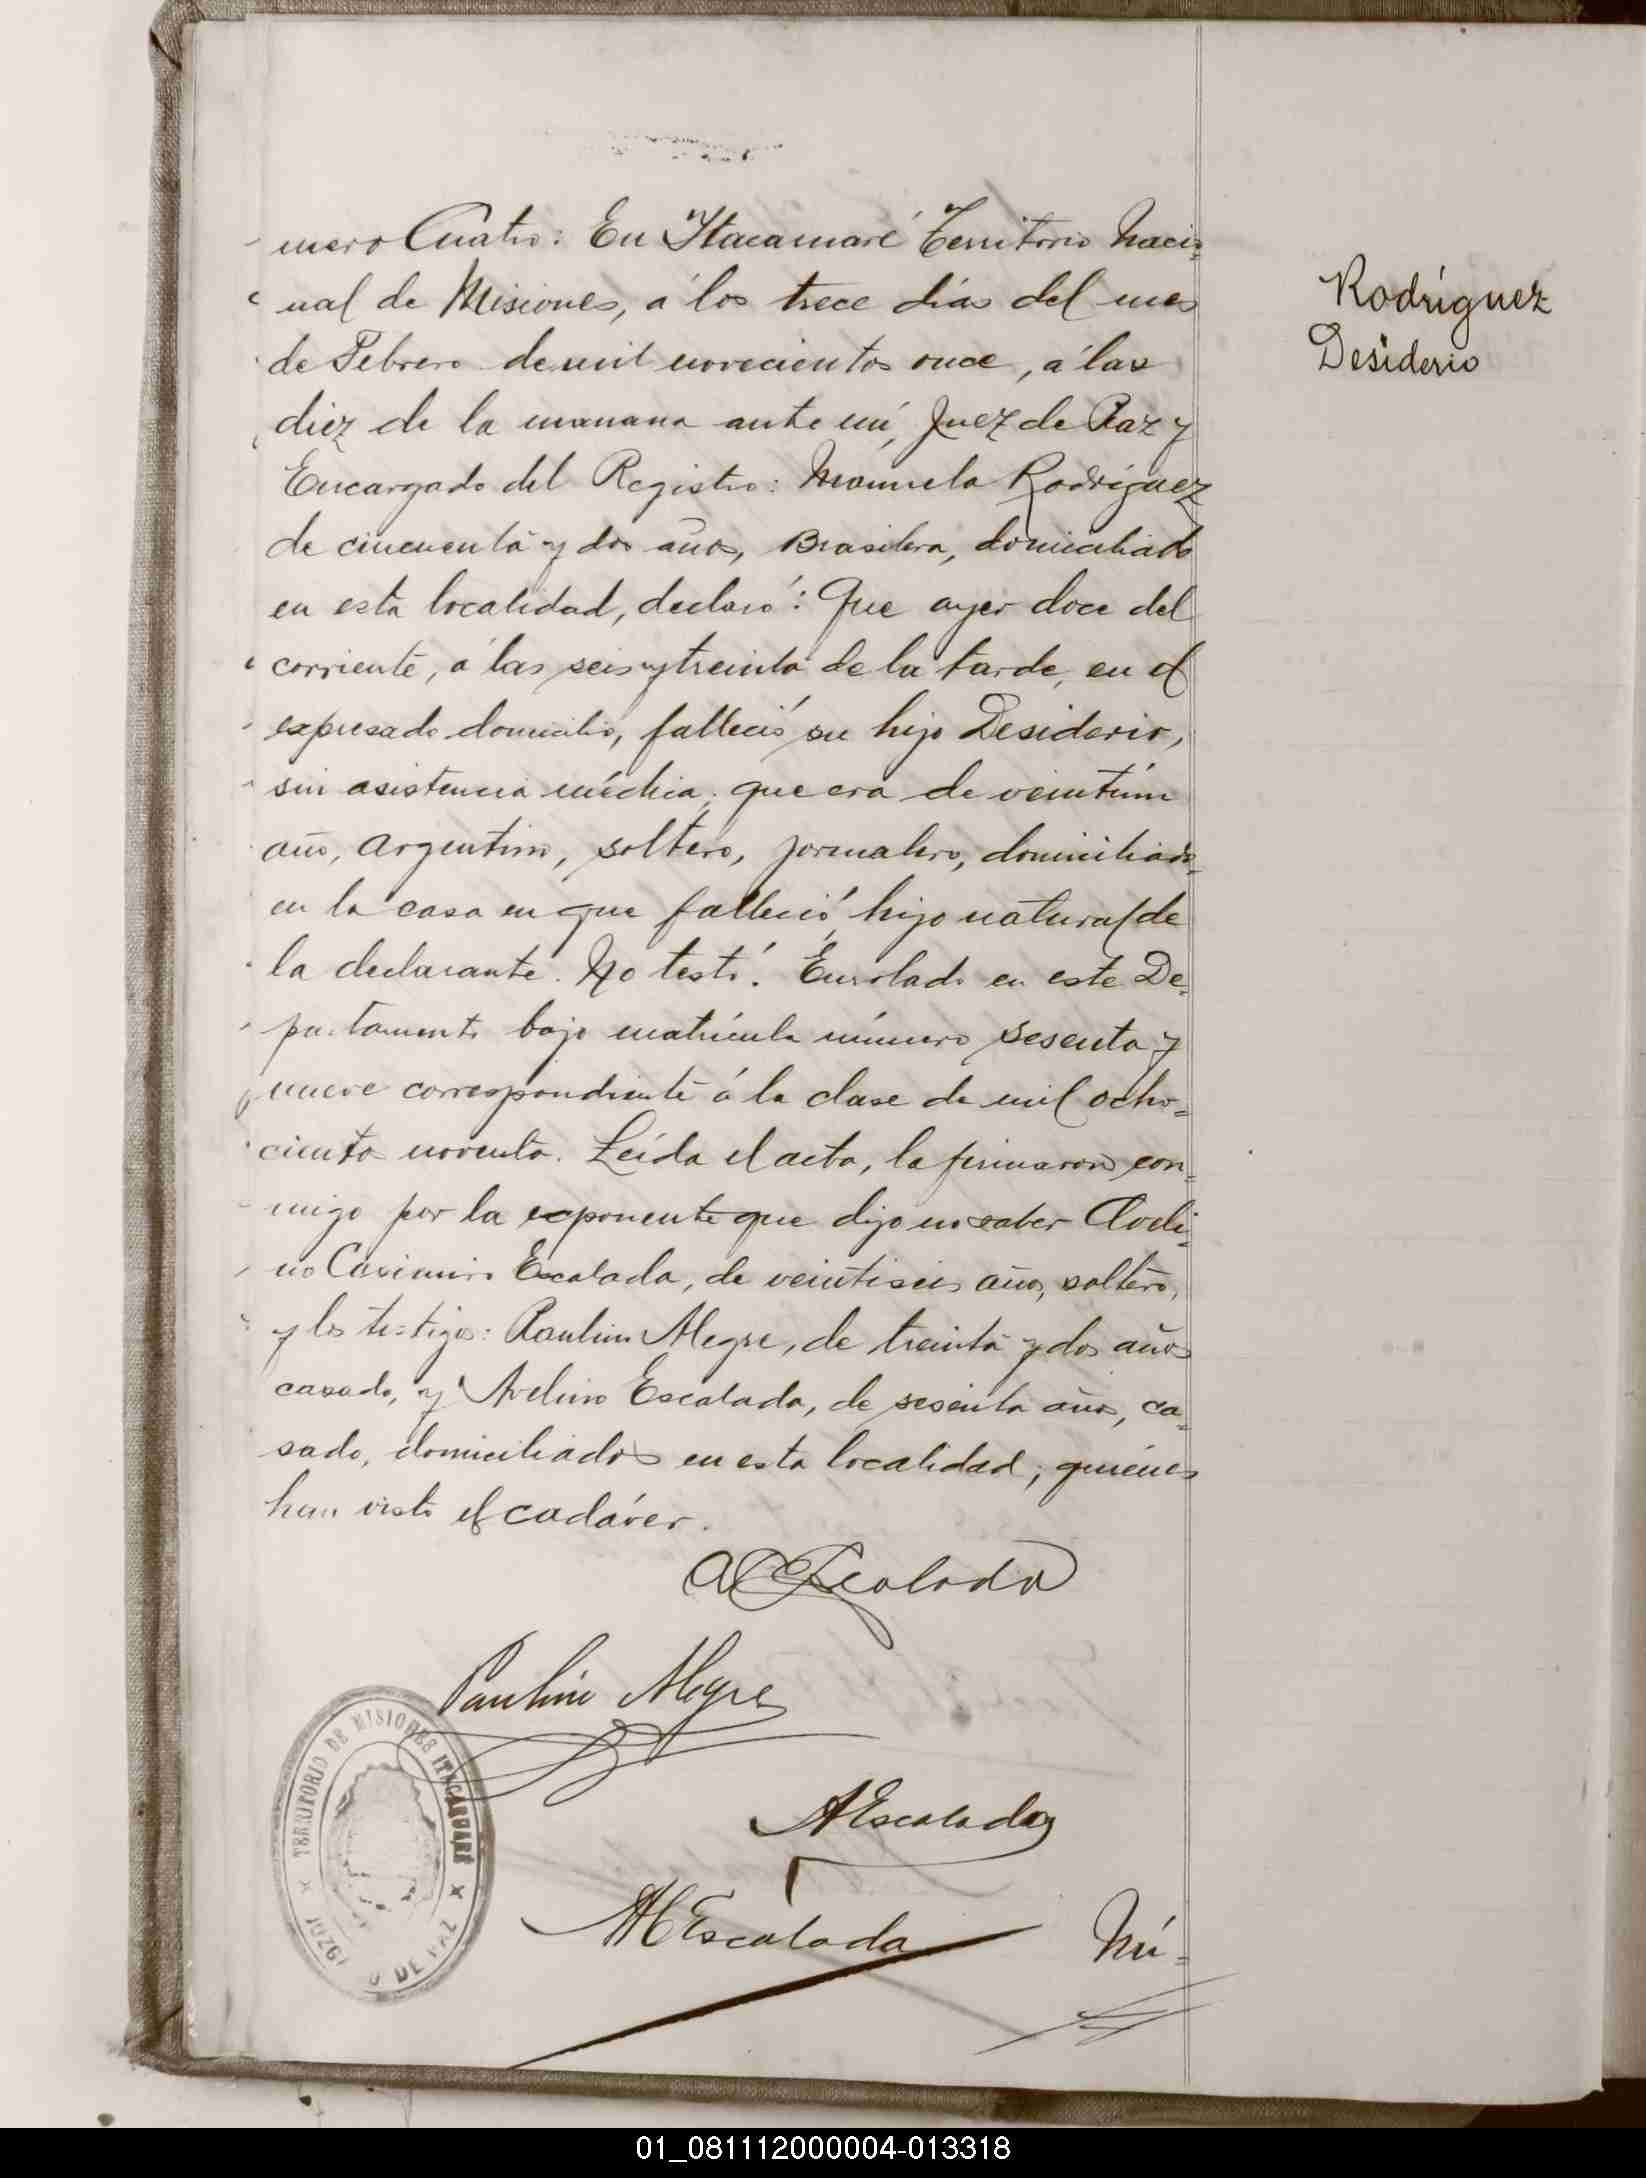 mero Cuatro: En Ytacaruaré Territorio Nacio=
nal de Misiones, á los trece dias del mes
de Febrero de mil novecientos once, á las
diez de la manana ante mí, Juez de Paz y
Encargado del Registro: Manuela Rodríguez
de cincuenta y dos años, Brasilera, domiciliada
en esta localidad, declaró: Que ayer doce del
corriente, á las seis y treinta de la tarde, en el
expresado domicilio, falleció su hijo Desiderio,
sin asistencia médica, que era de veintiún
año, argentino, soltero, jornalero, domiciliado
en la casa en que falleció, hijo natural de
la declarante. No testó. Enrolado en este De=
partamento bajo matrícula número sesenta y
nueve correspondiente á la clase de mil ocho=
cientos noventa. Leída el acta, la firmaron con=
migo por la exponente que dijo no saber Clodi=
no Casimiro Escalada, de veintiseis años, soltero,
y los testigos: Paulino Alegre, de treinta y dos años
casado, y Avelino Escalada, de sesenta años, ca=
sado, domiciliados en esta localidad; quiénes
han visto el cadáver.
Escalada
Paulino Alegre
AEscalada
Escalada
Nú=
Rodríguez
Desiderio
TERRITORIO DE MISIONES ITACARUARÉ
JUZGADO DE PAZ
01_081112000004-013318